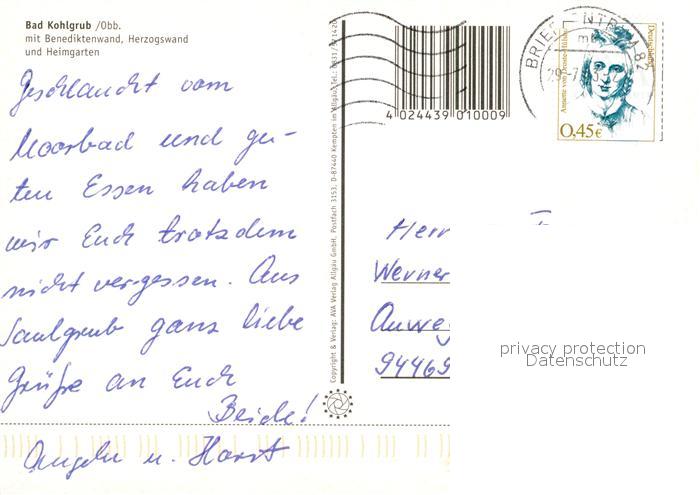 Bad Kohlgrub /Obb.
mit Benediktenwand, Herzogswand
und Heimgarten
Geschlaucht vom
Moorbad und gu-
ten Essen haben
wir Euch trotzdem
nicht vergessen. Aus
Saulgrub ganz liebe
Grüße an Euch
Beide!
Angela u. Horst
Copyright & Verlag: AVA Verlag Allgäu GmbH, Postfach 3153, D-87440 Kempten im Allgäu, Tel.:
4 024439 010009
BRIEFZENTRUM 82
Deutschland
Annette von Droste-Hülshoff
0,45€
Herr
Werner
Auweg
94469
privacy protection
Datenschutz